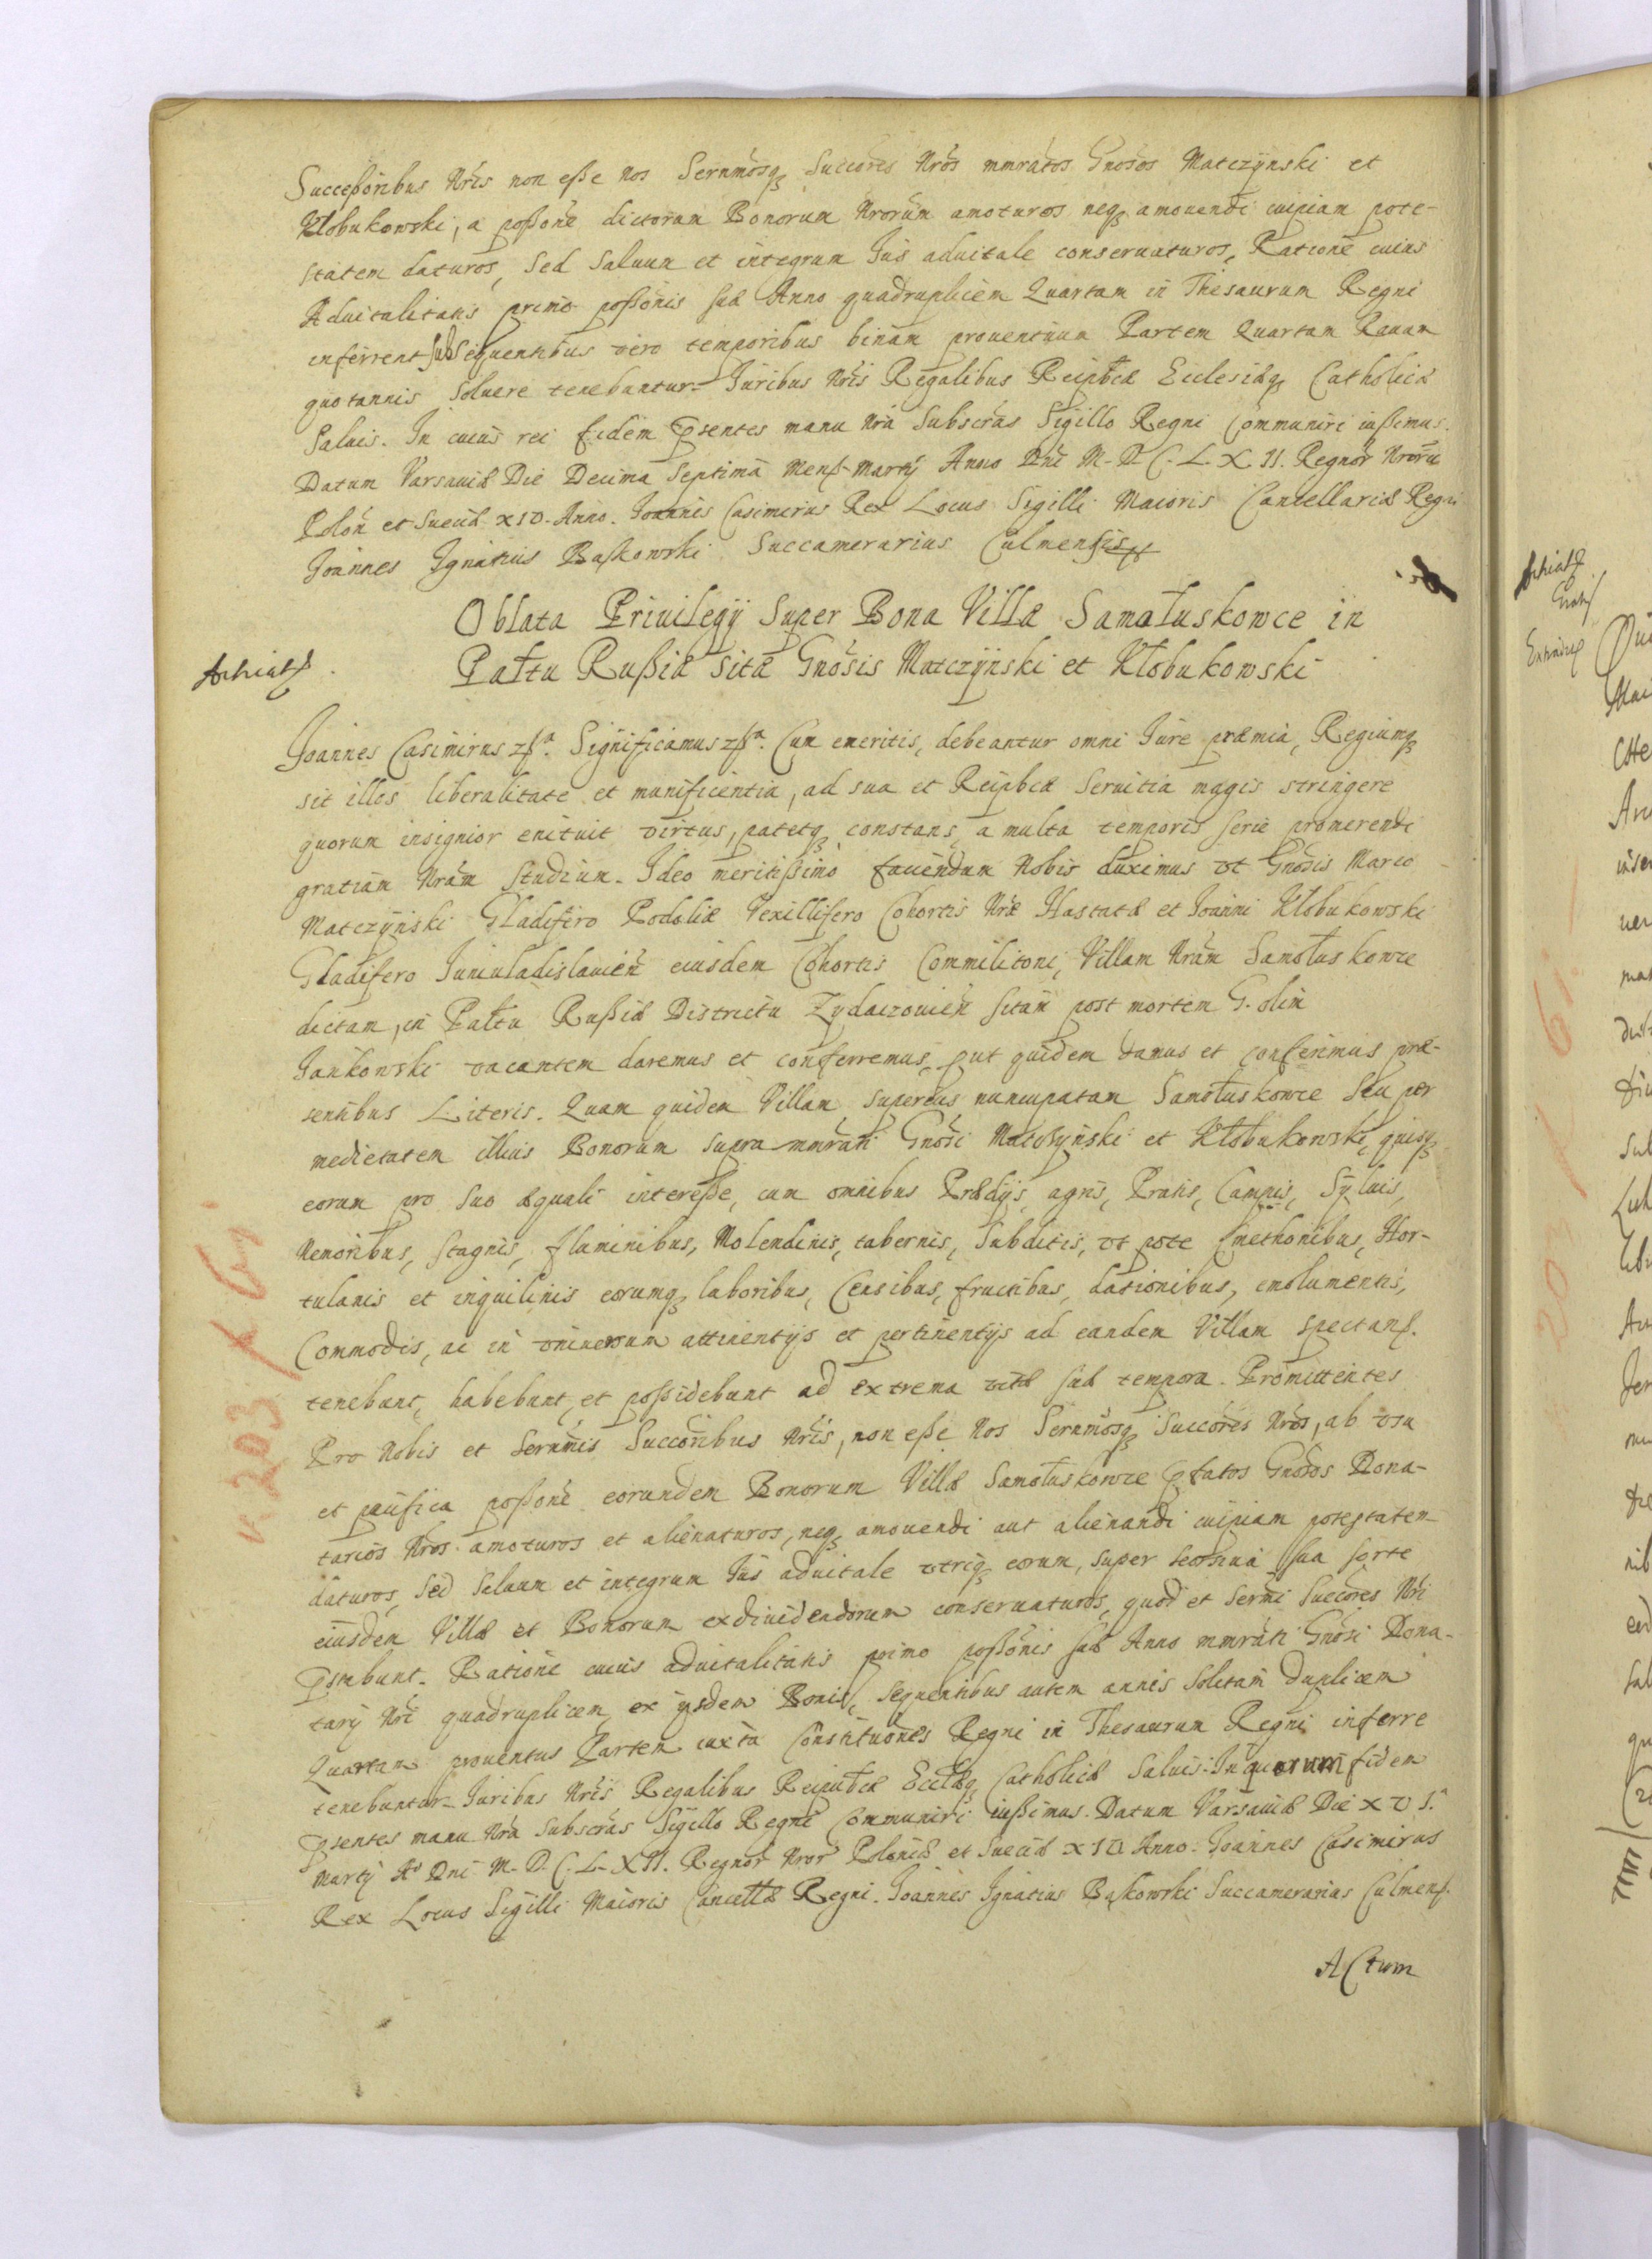 Successoribus Nr̃is non esse nos Sernm̃osq̢ Succores Nr̃os mmratos Gnosos Matczÿnski et
Kłobukowski, a possone dictorum Bonorum Nrorum amoturos neq̢ amouendi cuipiam pote-
statem daturos, Sed Saluum et integrum Jus aduitale conseruaturos, Ratione cuius
Aduitalitatis primo possonis suæ Anno quadruplicem Quartam in Thesaurum Regni
inferrent subsequentibus vero temporibus binam prouentuum Partem Quartam Rauam
quotannis soluere tenebuntur. Juribus Nris Regalibus Reipbcæ Ecclesiæq̢ Catholicæ
Saluis. In cuius rei fidem Psentes manu Nra Subscras Sigillo Regni Communiri iussimus.
Datum Varsauiæ Die Decima Septima Mens. Martij Anno Dni M. D C. L. X II. Regnor Nroru
Polon et Sueciæ XIV. Anno. Joannes Casimirus Rex Locus Sigilli Maioris Cancellariæ Regni
Joannes Ignatius Baskowski Succamerarius Culmensis
Oblata Priuilegÿ Super Bona Villæ Samołuskowce in
Pałtu Russiæ sitæ Gnosis Matczÿnski et Kłobukowski
Joannes Casimirus Significamus Cum emeritis, debeantur omni Jure præmia, Regiumq̢
sit illos liberalitate et munificentia, ad sua et Reipbcæ Seruitia magis stringere
quorum insignior enituit virtus, patetq̢ constans, a multa temporis serie promerendi
gratiam Nram Studium. Ideo meritissimo fauendum Nobis duximus vt Gnosis Marco
Matczÿnski Gladifero Podoliæ Vexillifero Cohortis Nræ Hastatæ et Joanni Kłobukowski
Gladifero Juniuladislauien eiusdem Cohortis Commilitoni, Villam Nram Samołuskowce
dictam, in Pałtu Russiæ Districtu Zydaczouien sitam post mortem G. olim
Jankowski vacantem daremus et conferremus, put quidem damus et conferimus præ-
sentibus Literis. Quam quidem Villam, superius nuncupatam Samołuskowce seu per
medietatem illius Bonorum supra mmrati Gnosi Matczÿnski et Kłobukowski, quisq̢
eorum pro suo æquali interesse, cum omnibus Prædijs, agris, Pratis, Campis, Sÿluis,
Nemoribus, stagnis, fluminibus, Molendinis, tabernis, Subditis, vt pote Cmethonibus, Hor-
tulanis et inquilinis eorumq̢ laboribus, Censibus, fructibus, dationibus, emolumentis,
Commodis, ac in vniuersum attinentijs et pertinentijs ad eandem Villam spectans.
tenebunt, habebunt, et possidebunt ad extrema vitæ suæ tempora. Promittentes
Pro Nobis et Sernmis Succoribus Nris, non esse Nos Sernmosq̢ Succores Nros, ab vsu
et pacifica possone eorundem Bonorum Villæ Samołuskowce Pfatos Gnosos Dona-
tarios Nros amoturos et alienaturos, neq̢ amouendi aut alienandi cuipiam potestatem
daturos, Sed Saluum et integrum Jus aduitale vtriq̢ eorum, super seorsiua sua sorte
eiusdem Villæ et Bonorum exdiuidendorum conseruaturos, quod et Sermi Succores Nri
Pstabunt. Ratione cuius aduitalitatis primo possonis suæ Anno mmrati Gnosi Dona-
tarij Nri quadruplicem, ex ijsdem Bonis, sequentibus autem annis solitam duplicem
Quartam prouentus Partem iuxta Constitutiones Regni in Thesaurum Regni inferre
tenebuntur. Juribus Nris Regalibus Reipubcæ Eccłæq̢ Catholicæ Saluis. In quorum fidem
Psentes manu Nra Subscras Sigillo Regni Communiri iussimus. Datum Varsauiæ Die X V I.
Martij Ao Dni M. D. C. L. X II. Regnor Nror Poloniæ et Sueciæ XIV Anno. Joannes Casimirus
Rex Locus Sigilli Maioris Cancellæ Regni. Joannes Ignatius Baskowski Succamerarius Culmens.
ACtum